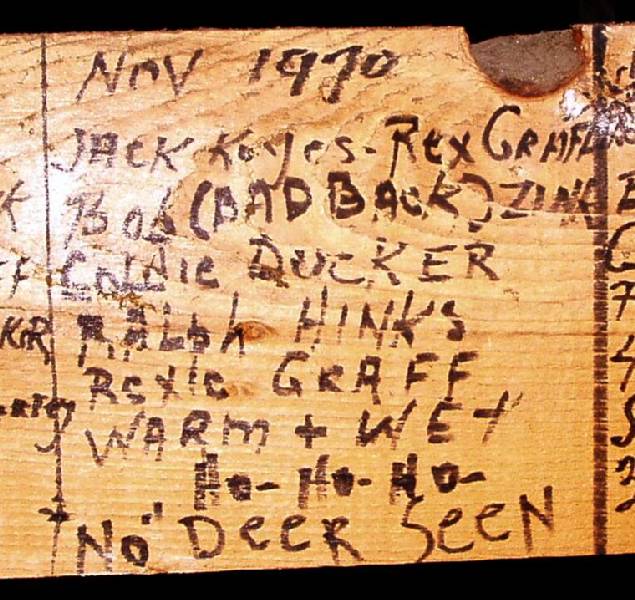 Nov 1970
JACK Koyes - Rex GRAFF
Bob (BAD BACK) ZINK
Eddie DUCKER
RALPH HINKS
Rexie GRAFF
WARM + WET
Ho- Ho- Ho-
"No" Deer Seen